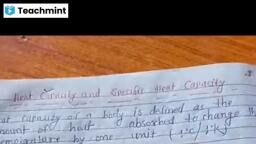 Teachmint
Heat Capacity and Specific Heat Capacity
Heat capacity of a body is defined as the
amount of heat absorbed to change the
temperature by one unit (1°C/1°K)